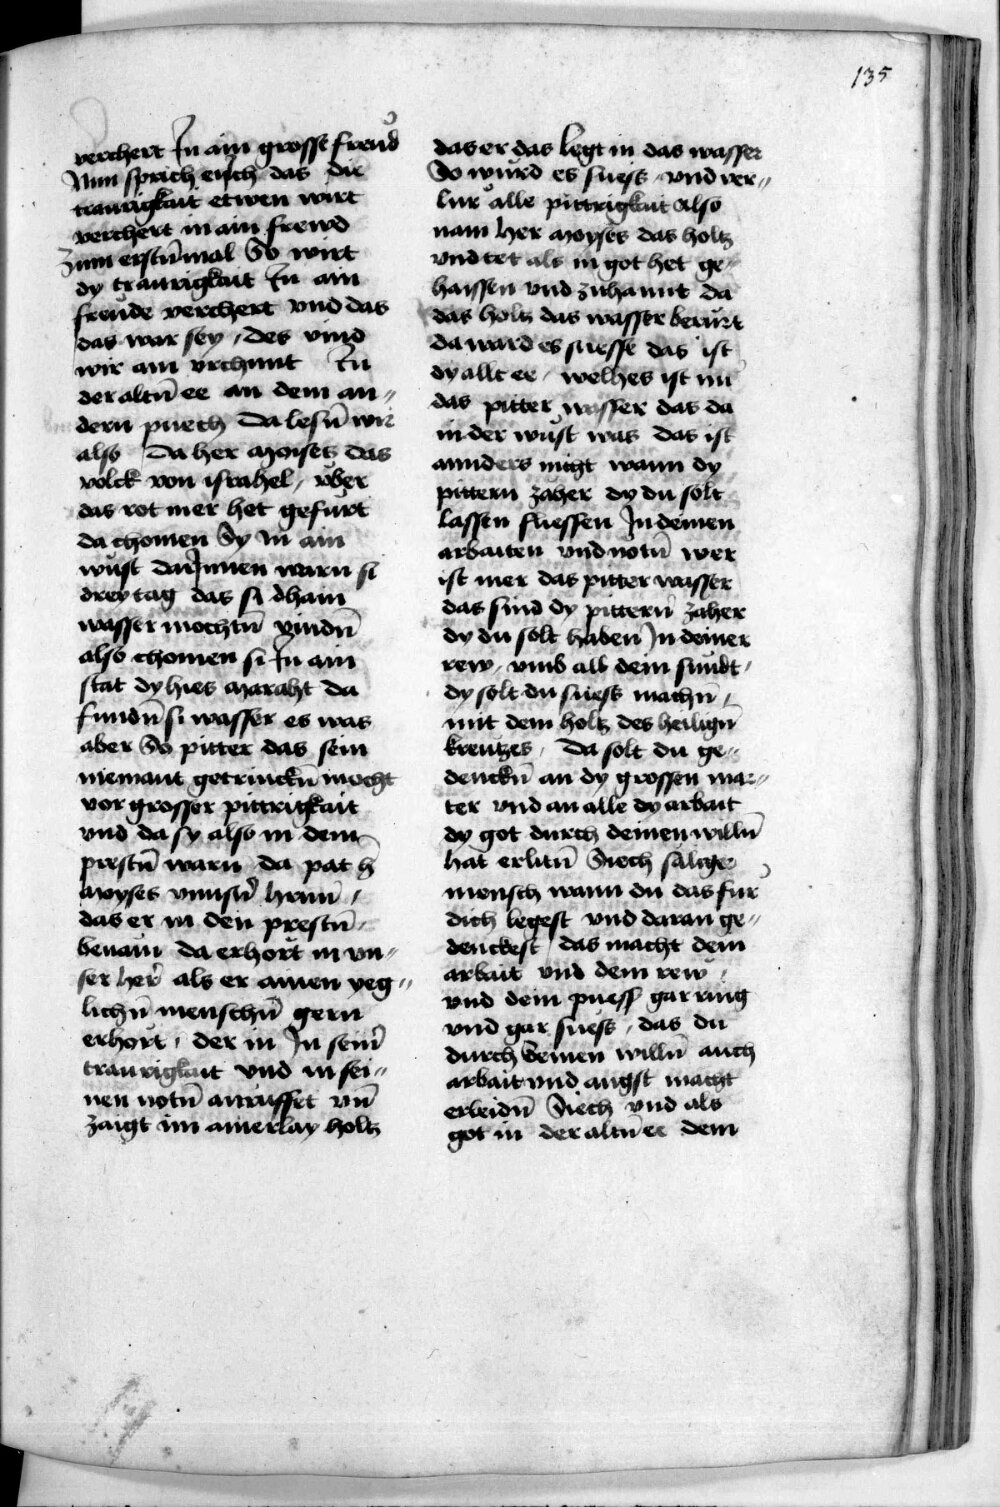 135
verchert In ain grosse freud
Nun sprich euch das die
traurigkait etwen wirt
verchert in ain frewd
Zum erstn̄mal So wirt
dy traurigkait In ain
freude verchert vnd das
das war sey / des vind
wir ain vrchunt In
der altn̄ ee an dem an〃
dern puech Da lesn̄ wir
also Da her Moises das
volck von israhel / vber
das rot mer het gefurt
da chomen Sy In ain
wust darInnen warn si
drey tag das si dhain
wasser mochtn̄ vindn̄
also chomen si In ain
stat dy hies Maraht da
fundn̄ si wasser es was
aber So pitter das sein
niemant getrinckn̄ mocht
vor grosser pittrigkait
vnd da sy also in dem
prestn̄ warn da pat h̄
Moyses vnnsn̄ herrn̄ /
das er in den prestn̄
benam da erhort in vn〃
ser her̄ als er ainen yeg〃
lichn̄ menschn̄ gern
erhort / der in In sein̄
traurigkait vnd in sei〃
nen notn̄ anruffet vn̄
zaigt im ainerlay holtz
das er das legt in das wasser
So wurd es suess / vnd ver〃
lur alle pittrigkait Also
nam her Moyses das holtz
vnd tet als in got het ge〃
haissen vnd zuhannt da
das holtz das wasser berurt
da ward es suesse das ist
dy allt ee / welhes ist nu
das pitter wasser das da
in der wust was das ist
annders nicht wann dy
pittern zaher dy du solt
lassen fliessen In deinen
arbaiten vnd notn̄ wer
ist mer das pitter wasser
das sind dy pittern̄ zaher
dy du solt haben In deiner
rew / vmb all dein sundt /
dy solt du suess machn̄ /
mit dem holtz des heilign̄
kreutzes / Da solt du ge〃
denckn̄ an dy grossen mar〃
ter vnd an alle dy arbait
dy got durch deinen willn̄
hat erlitn̄ Siech saliger
mensch wann du das fur
dich legest vnd daran ge〃
denckest / das macht dein
arbait vnd dein rew /
vnd dein puess gar ring
vnd gar suess / das du
durch seinen willn̄ auch
arbait vnd angst macht
erleidn̄ Siech vnd als
got in der altn̄ ee dem